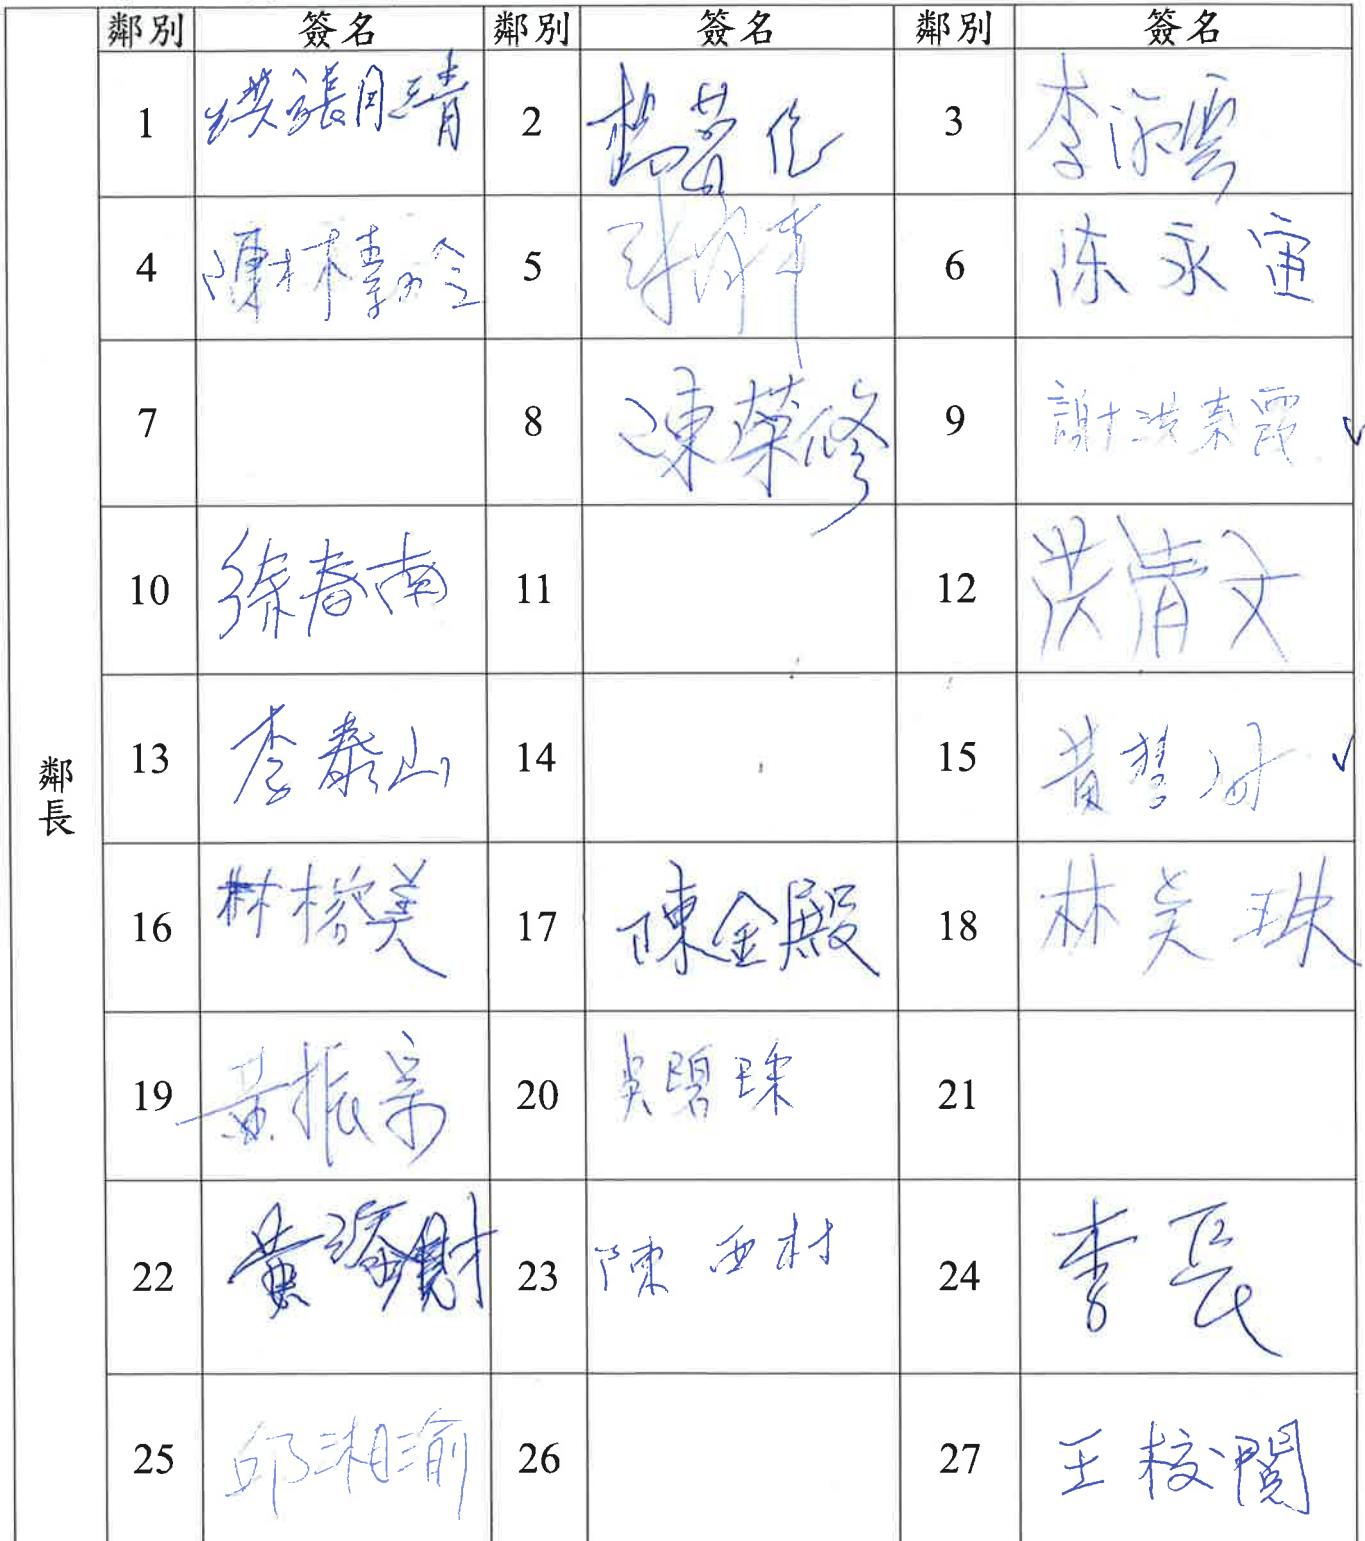 鄰別 簽名 鄰別 簽名 鄰別 簽名
鄰長
1 洪張月清 2 楊 3 李淑雲
4 陳林素玲 5 6 陈永寅
7 8 陳榮修 9 謝洪素霞 ✓
10 徐春南 11 12 洪清文
13 李泰山 14 15 黃 ✓
16 林榕美 17 陳金殿 18 林美珠
19 黃振宗 20 吳碧珠 21
22 黃添財 23 陳西村 24 李長
25 邱湘渝 26 27 王校閱